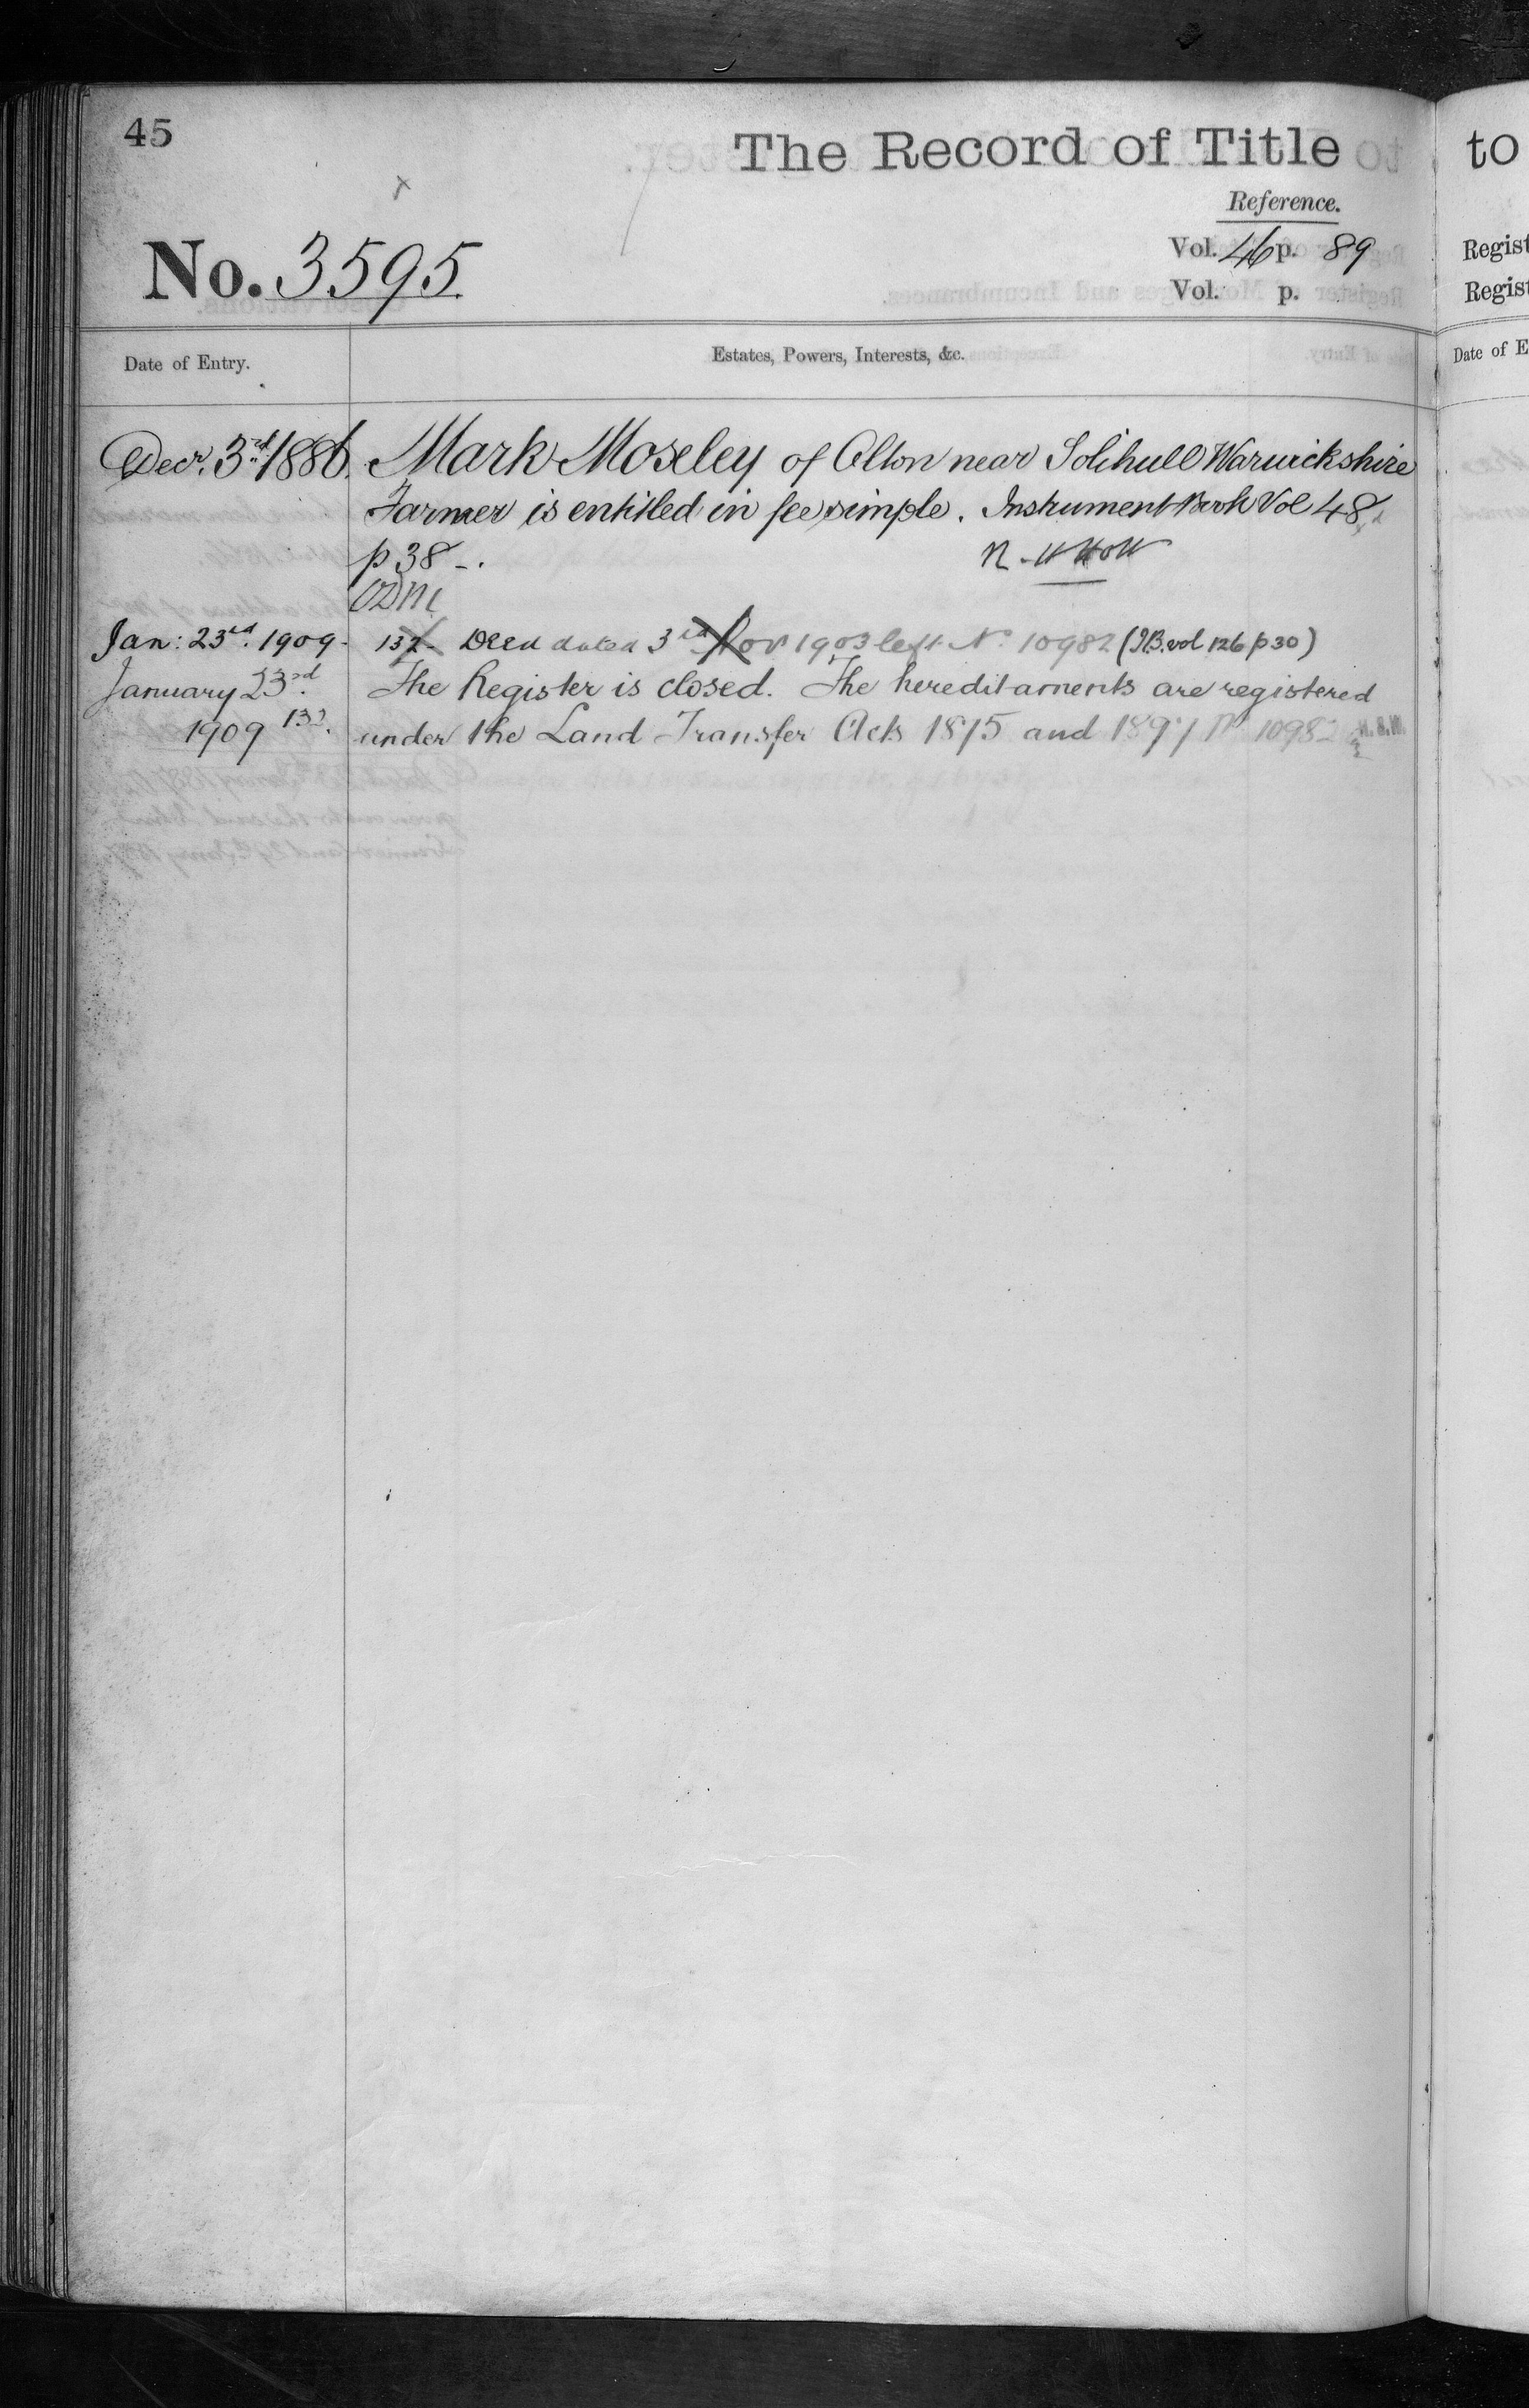 45
The Record of Title
to
Reference.
Vol. 46 p. 89
Regist
No. 3595.
Vol. p.
Regist
Date of Entry.
Estates, Powers, Interests, &c.
Date of E
Decr. 3rd 1886. Mark Moseley of Olton near Solihull Warwickshire
Farmer is entitled in fee simple. Instrument Book Vol 48
p 38 -.
Jan: 23rd. 1909. 132 Deed dated 3rd Nov 1903 left No 10982 (I.B. vol 126 p 30)
January 23rd. The Register is closed. The hereditaments are registered
1909 132. under the Land Transfer Acts 1875 and 1897 No 10982